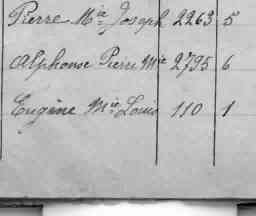 Pierre Mie Joseph 2263 5
Alphonse Pierre Mie 2795 6
Eugène Mie Louis 110 1